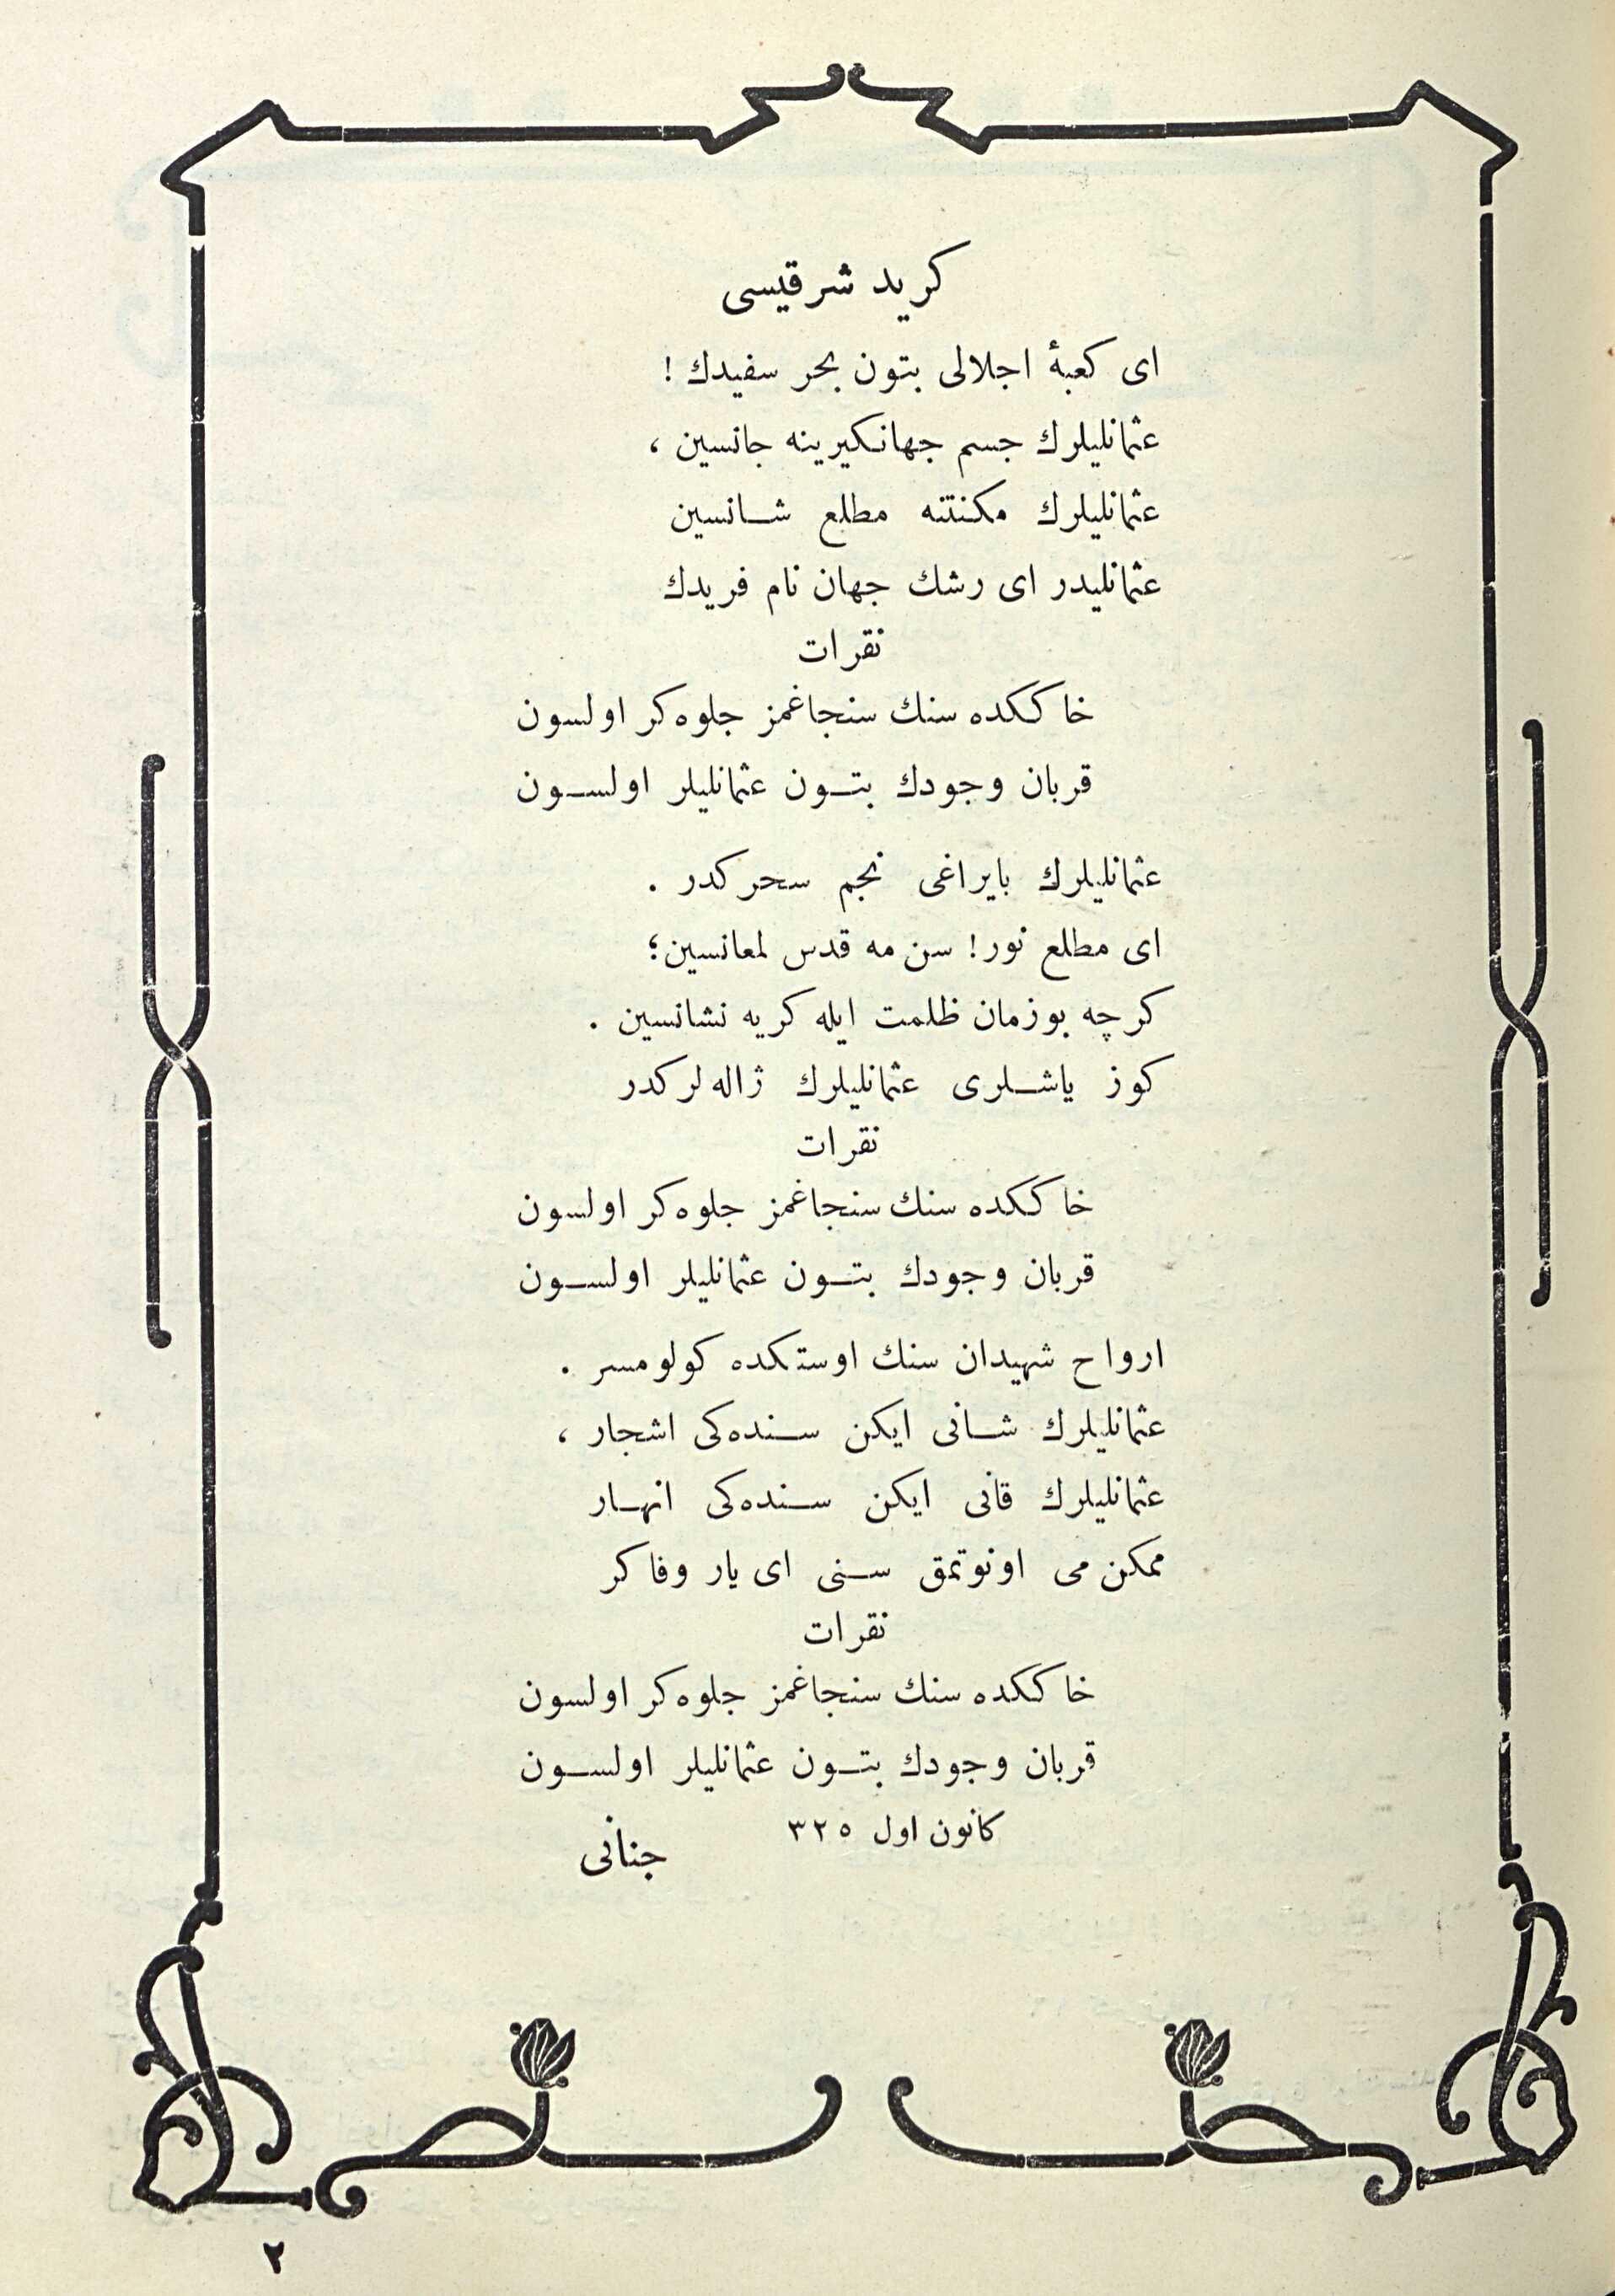 كريد شرقيسى
اى كعبهٔ اجلالى بتون بحر سفيدك !
عثمانليلرك جسم جهانكيرينه جانسين ،
عثمانليلرك مكنتنه مطلع شانسين
عثمانليدر اى رشك جهان نام فريدك
نقرات
خاككده سنك سنجاغمز جلوه‌كر اولسون
قربان وجودك بتون عثمانليلر اولسون
عثمانليلرك بايراغى نجم سحركدر .
اى مطلع نور! سن مه قدس لمعانسين؛
كرچه بوزمان ظلمت ايله كريه نشانسين .
كوز ياشلرى عثمانليلرك ژاله‌لركدر
نقرات
خاككده سنك سنجاغمز جلوه‌كر اولسون
قربان وجودك بتون عثمانليلر اولسون
ارواح شهيدان سنك اوستكده كولومسر .
عثمانليلرك شانى ايكن سنده‌كى اشجار ،
عثمانليلرك قانى ايكن سنده‌كى انهار
ممكن مى اونوتمق سنى اى يار وفاكر
نقرات
خاككده سنك سنجاغمز جلوه‌كر اولسون
قربان وجودك بتون عثمانليلر اولسون
كانون اول ٣٢٥
جنانى
٢